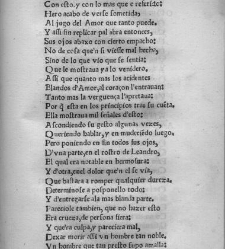 Con esto, y con lo mas que e referido:
Hero acabo de verse sometida,
Al jugo del Amor que tanto puede.
Y assi sin replicar pal abra entonces,
Sus ojos abaxo con cierto empacho:
No de cosa qu'en si viesse mal hecho,
Sino de lo que vio que se sentia:
Que le mostraua ya lo venidero,
Assi que quanto mas los acidentes
Blandos d'Amor, al coraçon l'entrauan:
Tanto mas la verguença l'apretaua:
Por q̃ esta en los principios tras su cuesta.
Ella mostraua mil señales d'esto:
Ascondiendo su gesto algunas vezes,
Queriendo hablar, y en mudeciedo luego,
Pero poniendo en fin todos sus ojos,
D'vna parte, en el rostro de Leandro,
El qual era notable en hermosura:
Y d'otra, en el dolor que'n el se via,
Que bastara a romper qualquier dureza.
Determinose a posponello todo:
Y d'entregarse ala mas blanda parte.
Pareciole tambien, que no hazer esto
Era crueza, de persona fiera:
Y quiera culpa, y pareciera mal,
Dexar morir assi vn hombre tan noble.
Vn hombre que tan presto supo amalla: